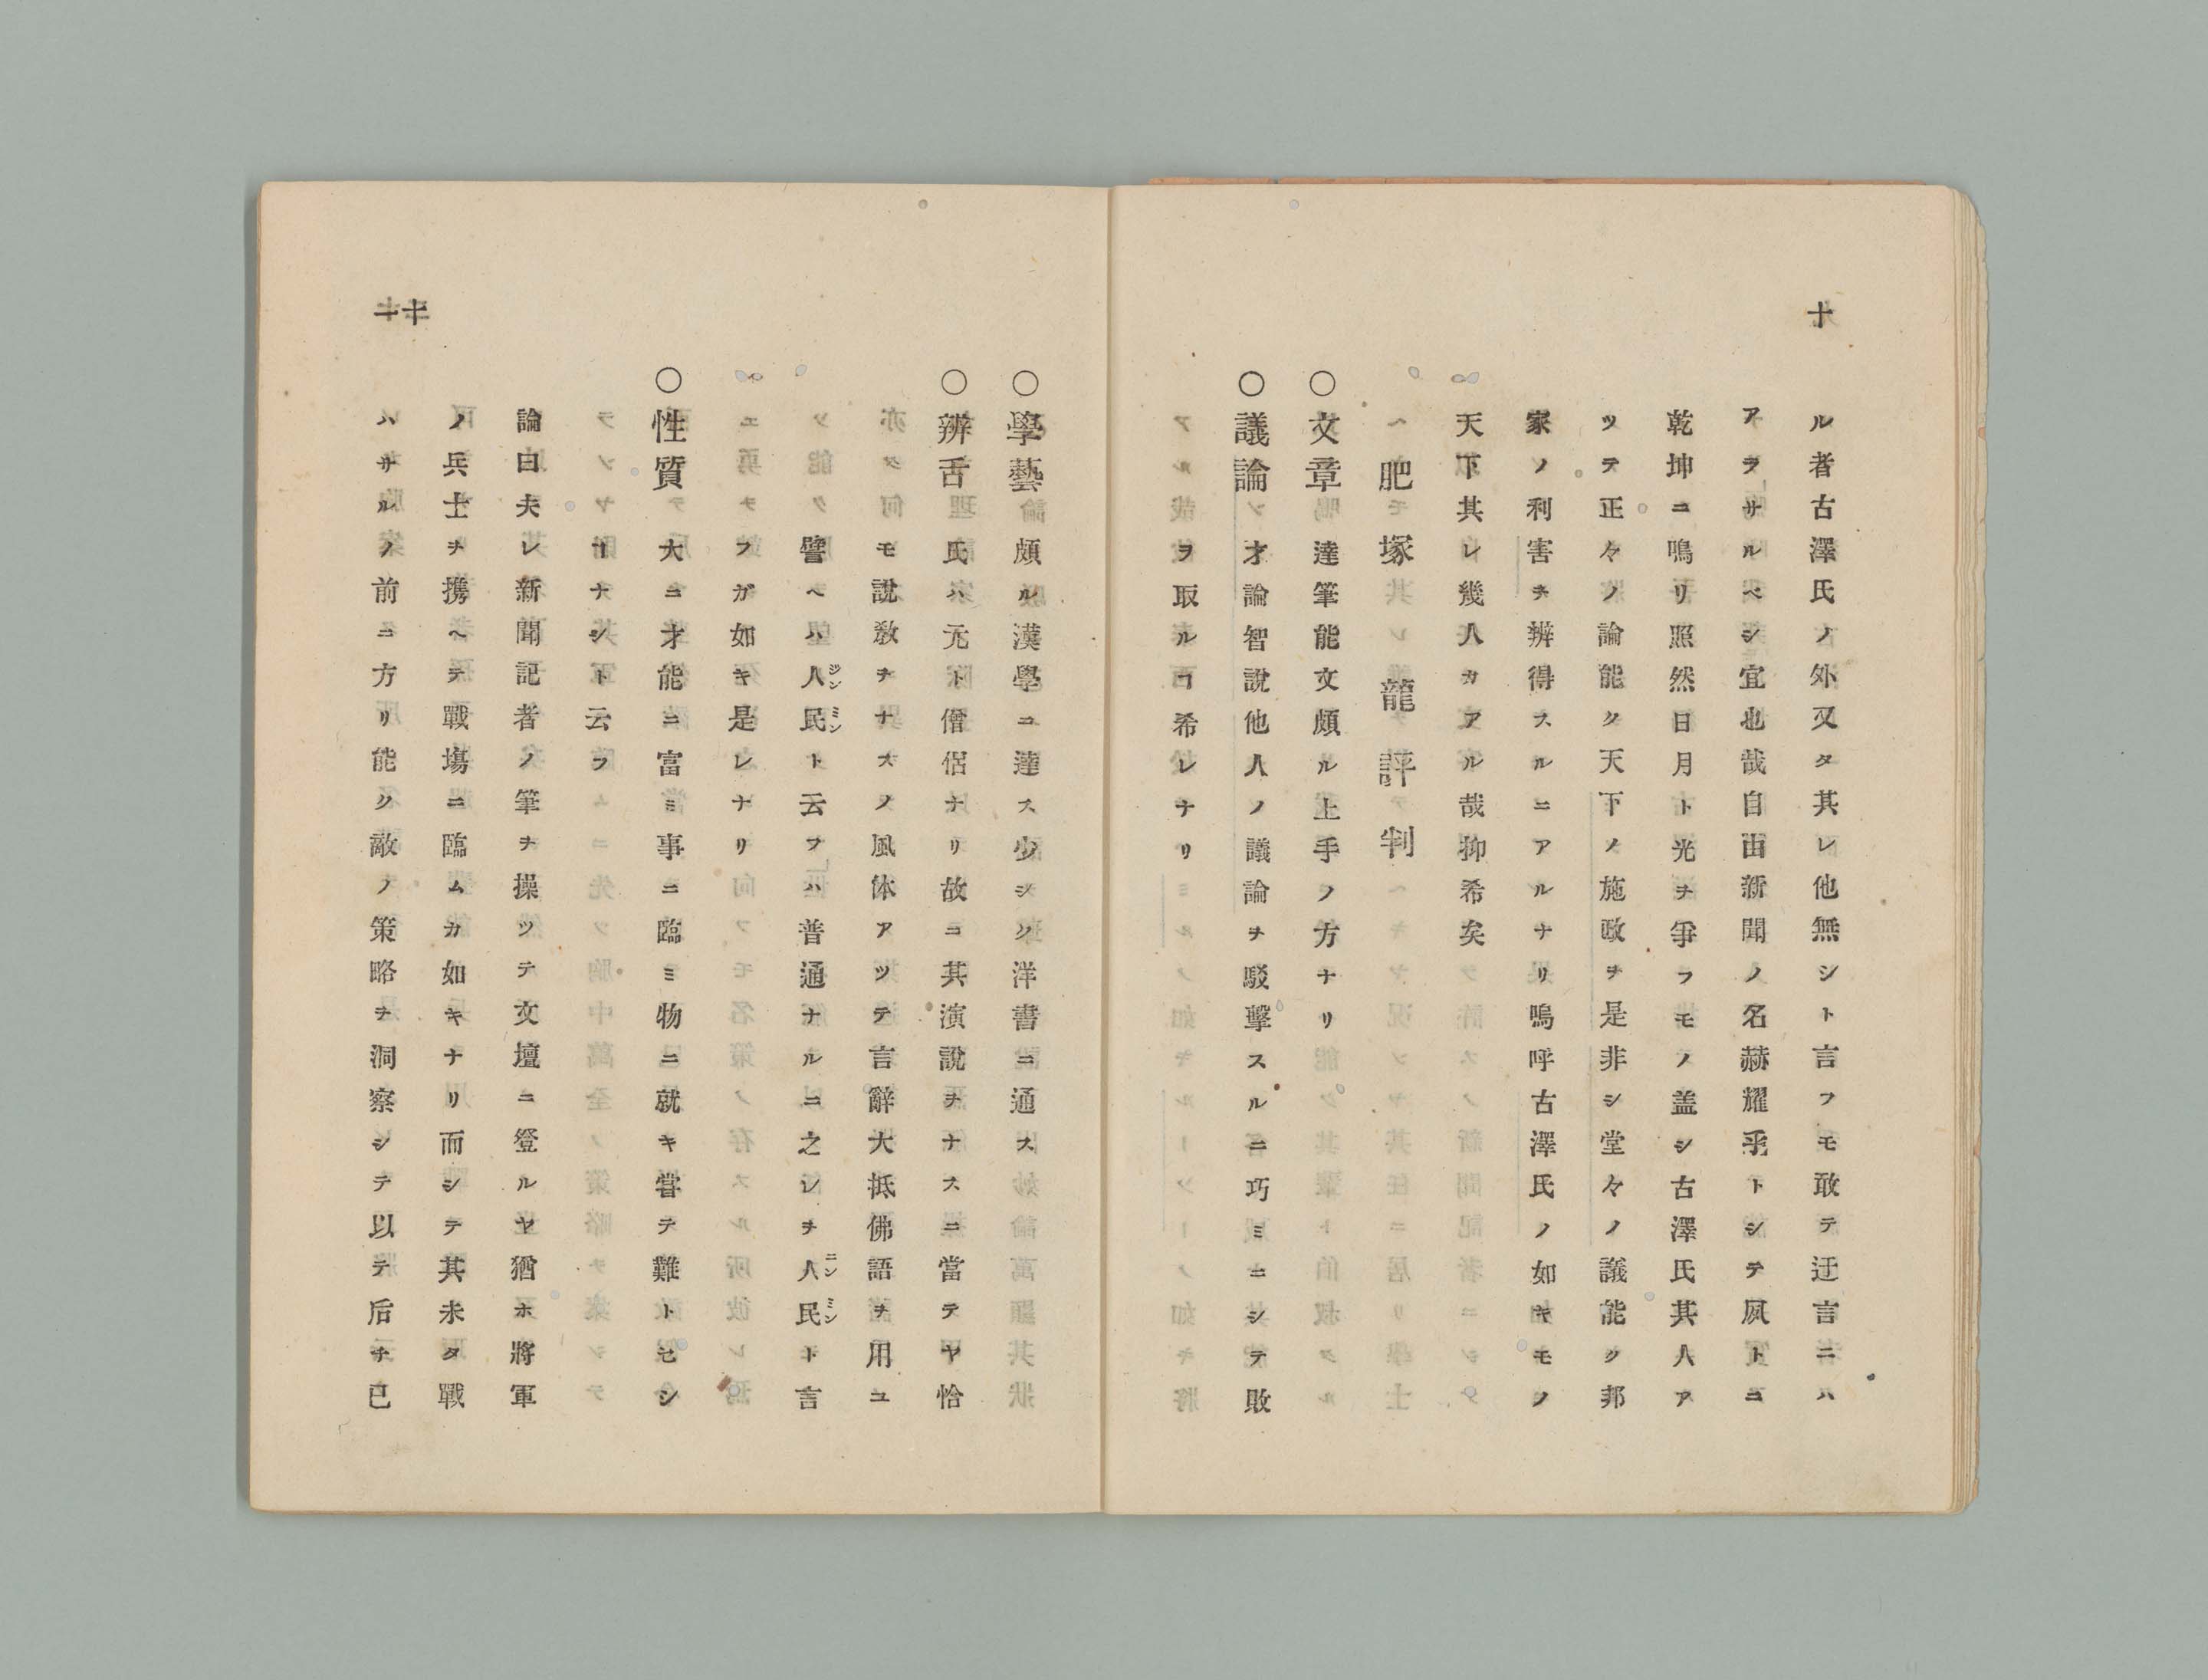 十
ル者古澤氏ノ外又タ其レ他無シト言フモ敢テ迂言ニハ
アラサルベシ宜也哉自由新聞ノ名赫耀乎トシテ夙トニ
乾坤ニ鳴リ照然日月ト光ヲ爭フモノ盖シ古澤氏其人ア
ツテ正々ノ論能ク天下ノ施政ヲ是非シ堂々ノ議能ク邦
家ノ利害ヲ辨得スルニアルナリ嗚呼古澤氏ノ如キモノ
天下其レ幾人カアル哉抑希矣
肥塚龍評判
○文章 達筆能文頗ル上手ノ方ナリ
○議論 才論智說他人ノ議論ヲ駁擊スルニ巧ミニシテ敗
ヲ取ルヿ希レナリ
○學藝 頗ル漢學ニ達ス少シク洋書ニ通ス
○辨舌 氏ハ元ト僧侶ナリ故ニ其演說ヲナスニ當テヤ恰
モ說敎ヲナスノ風体アツテ言辭大抵佛語ヲ用ユ
譬ヘハ人民ト云フハ普通ナルニ之レヲ人民ト言
フガ如キ是レナリ
○性質 大ニ才能ニ富ミ事ニ臨ミ物ニ就キ甞テ難トセシ
ヿナシト云フ
論曰夫レ新聞記者ノ筆ヲ操ツテ文壇ニ登ルヤ猶ホ將軍
ノ兵士ヲ携ヘテ戰塲ニ臨ムカ如キナリ而シテ其未タ戰
ハサルノ前ニ方リ能ク敵ノ策略ヲ洞察シテ以テ后チ已
十一